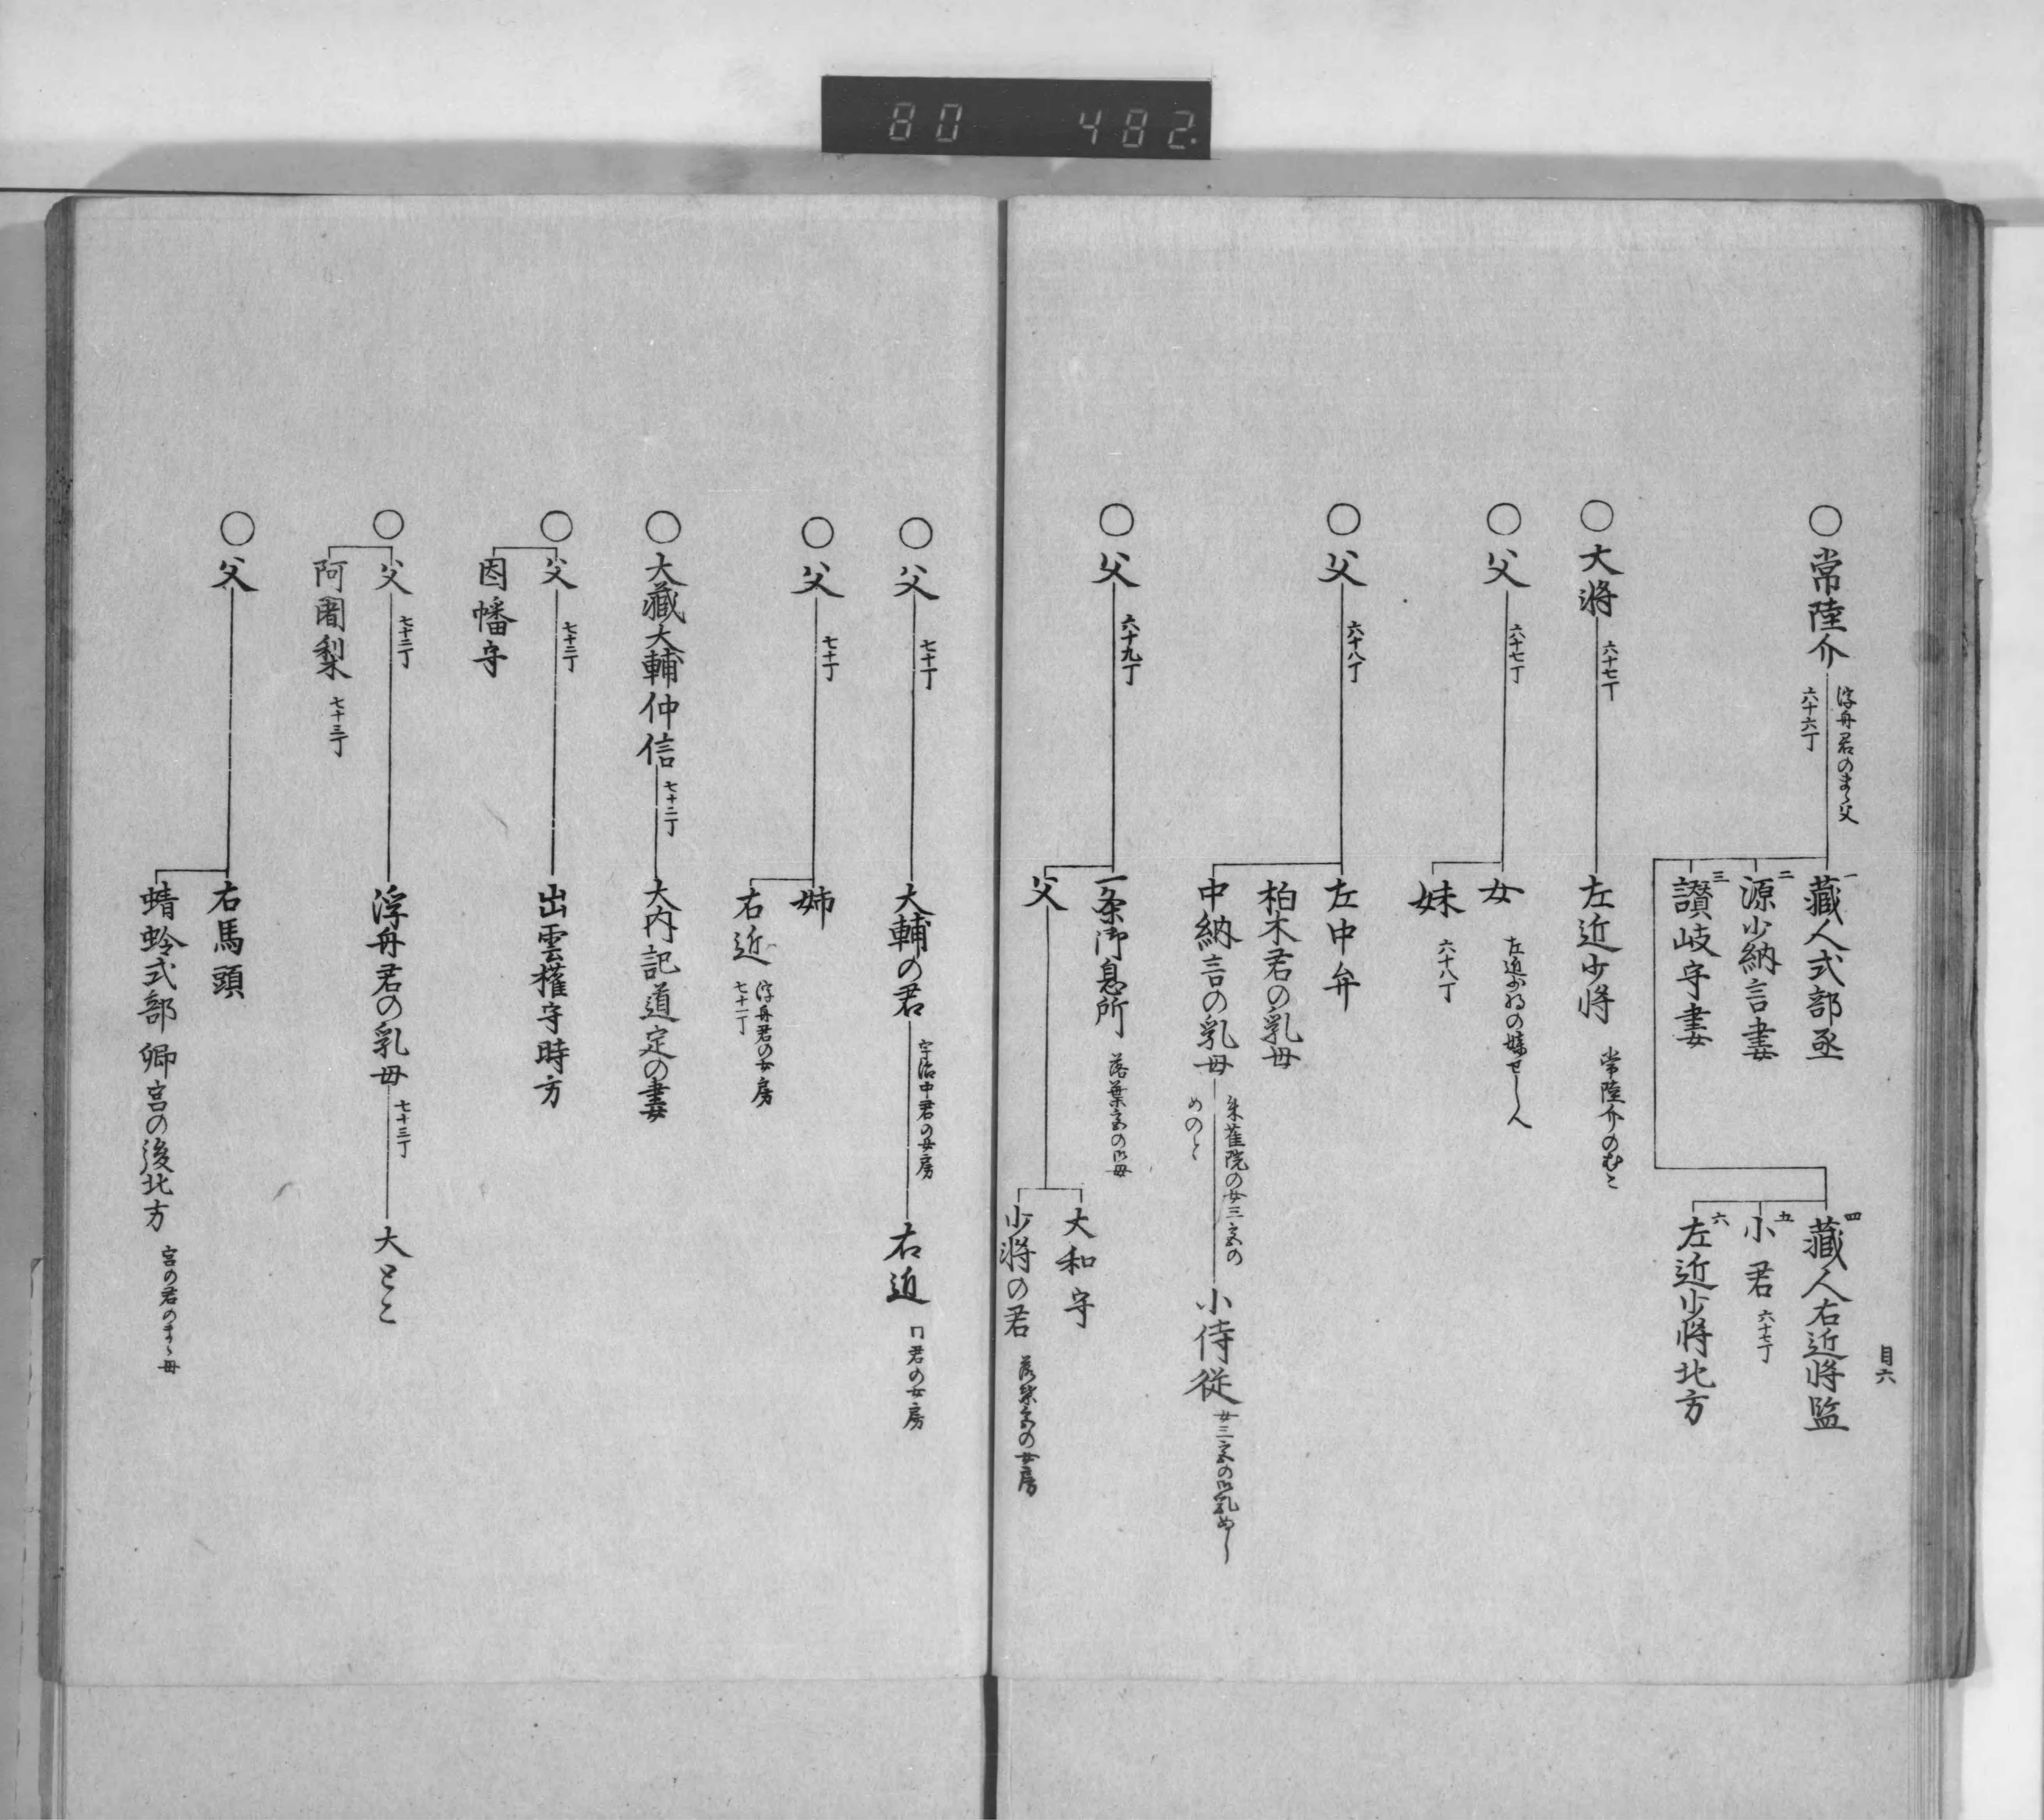 80 482.
目六
○常陸介
浮舟君のまゝ父
六十六丁
一
藏人式部丞
二
源少納言妻
三
讃岐守妻
四
藏人右近將監
五
小君 六十七丁
六
左近少將北方
○大將 六十七丁
左近少將 常陸介のむこ
○父 六十七丁
女
妹 六十八丁
○父 六十八丁
左中弁
柏木君の乳母
中納言の乳母
朱雀院の女三宮の
めのと
小侍従
○父 六十九丁
一条御息所 落葉宮の御母
父
大和守
少將の君 落葉宮の女房
○父 七十丁
大輔の君 宇治中君の女房
右近 同君の女房
○父 七十丁
姉
右近
浮舟君の女房
七十一丁
○大藏大輔仲信 七十二丁
大内記道定の妻
○父 七十二丁
出雲權守時方
因幡守
○父 七十二丁
浮舟君の乳母 七十三丁
大とこ
阿闍梨 七十三丁
○父
右馬頭
蜻蛉式部卿宮の後北方 宮の君のまゝ母